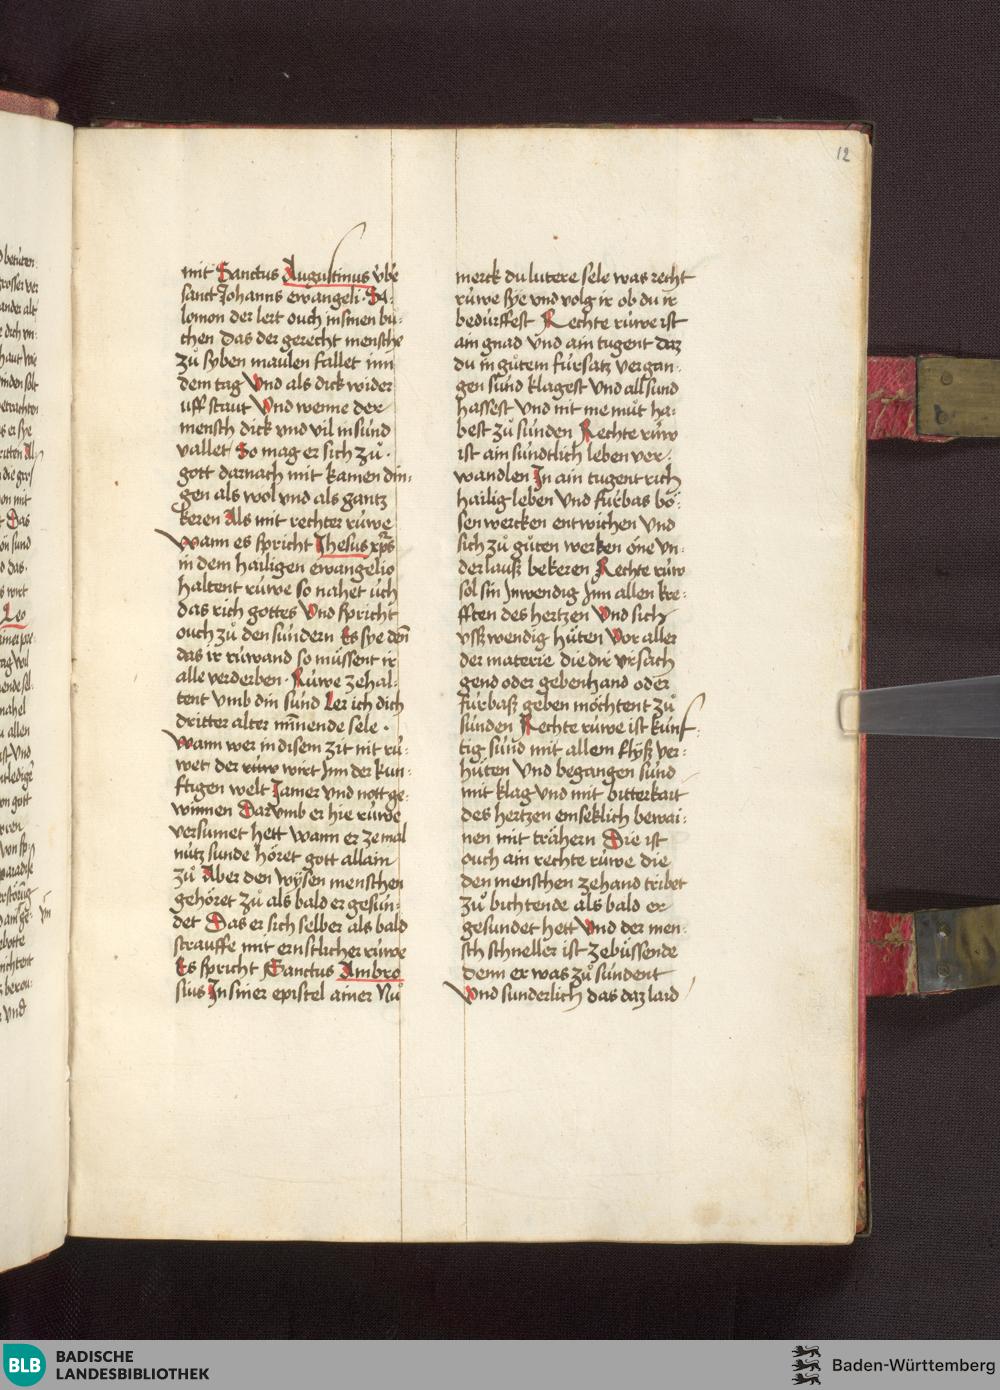 12
mit Sanctus Augustinus vͤbe
sanct Johanns ewangeli. Sa-
lomon der lert ouch in sinen bu-
chen das der gerecht mensche
zů syben maulen fallet inn
dem tag Vnd als dick wider
uff staut Vnd wenne der
mensch dick vnd vil in sünd
vallet So mag er sich zů
gott darnach mit kainen din-
gen als wol vnd als gantz
keren Als mit rechter rüwe
Wann es spricht Jhesus xp̄s
in dem hailigen ewangelio
haltent rüwe so nahet üch
das rich gottes Vnd spricht
ouch zů den sündern Es sye deñ
das ir rüwand so müssent ir
alle verderben. Rüwe ze hal-
tent vmb din sünd Ler ich dich
dritter alter minnende sele.
Wann wer in disem zit nit rü-
wet der rüw wirt Jnn der kün-
ftigen welt Jamer vnd nott ge-
winnen Darvmb er hie rüwe
versumet hett wann er ze mal
nütz sunde höret gott allain
zů Aber den wysen menschen
gehöret zů als bald er gesün-
det Das er sich selber als bald
strauffe mit ernstlicher rüwe
Es spricht Sanctus Ambro
sius Jn siner epistel ainer Nů
merck du lutere sele was recht
rüwe sye vnd volg ir ob du ir
bedürffest Rechte rüwe ist
ain gnad vnd ain tugent daz
du in gůtem fürsatz vergan-
gen sünd klagest vnd all sünd
hassest vnd nit me můt ha-
best zů sünden Rechte rüw
ist ain sündtlich leben ver-
wandlen Jn ain tugentrich
hailig leben Vnd fürbas bö-
sen wercken entwichen Vnd
sich zů gůten werken one vn-
derlauß bekeren Rechte rüw
sol sin Jnwendig Jnn allen kre-
fften des hertzen Vnd sich
vsswendig hüten Vor aller
der materie die dir vrsach
gend oder geben hand oder
fürbaß geben möchtent zů
sünden Rechte rüwe ist künf-
tig sünd mit allem flyß ver-
hüten Vnd begangen sünd
mit klag Vnd mit bitterkait
des hertzen emseklich bewai-
nen mit trähern Die ist
ouch ain rechte rüwe die
den menschen ze hand tribet
zů bichtende als bald er
gesundet hett Vnd der men-
sch schneller ist ze büssende
denn er was zů sündent
Vnd sunderlich das daz laid
BLB BADISCHE
LANDESBIBLIOTHEK
Baden-Württemberg